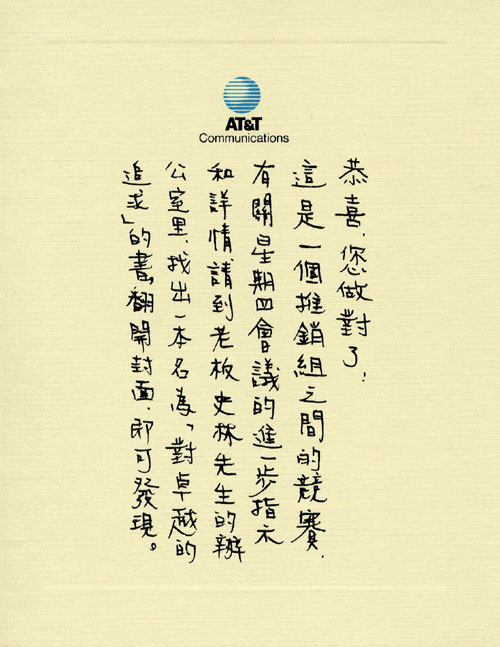 AT&T
Communications
恭喜,您做對了,
這是一個推銷組之間的競賽.
有關星期四會議的進一步指示
和詳情,請到老板史林先生的辦
公室里,找出一本名為「對卓越的
追求」的書,翻開封面,即可發現。